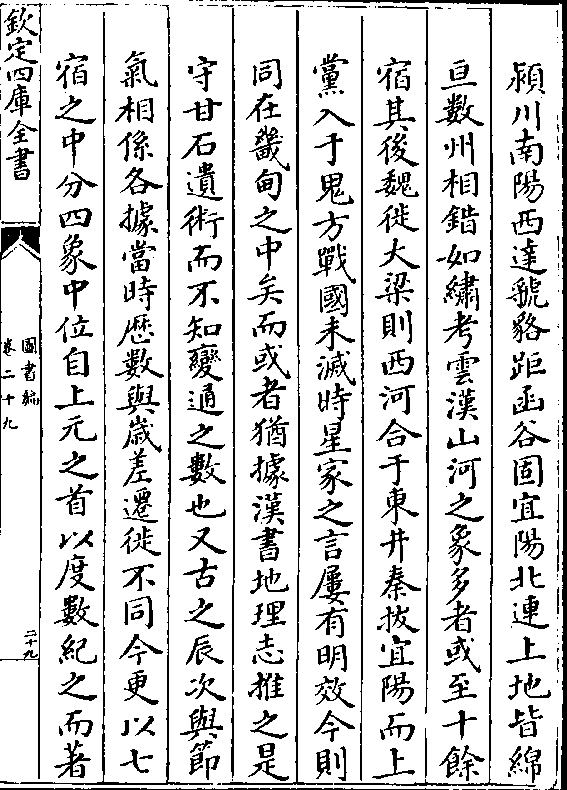 潁川南陽西達虢畧距函谷固宜陽北連上地皆綿
亘數州相錯如繡考雲漢山河之象多者或至十餘
宿其後魏徙大梁則西河合于東井秦拔宜陽而上
黨入于鬼方戰國未滅時星家之言屢有明效今則
同在畿甸之中矣而或者猶據漢書地理志推之是
守甘石遺術而不知變通之數也又古之辰次與節
氣相係各據當時歴數與歲差遷徙不同今更以七
宿之中分四象中位自上元之首以度數紀之而著
欽定四庫全書
圖書編
卷二十九
二十九